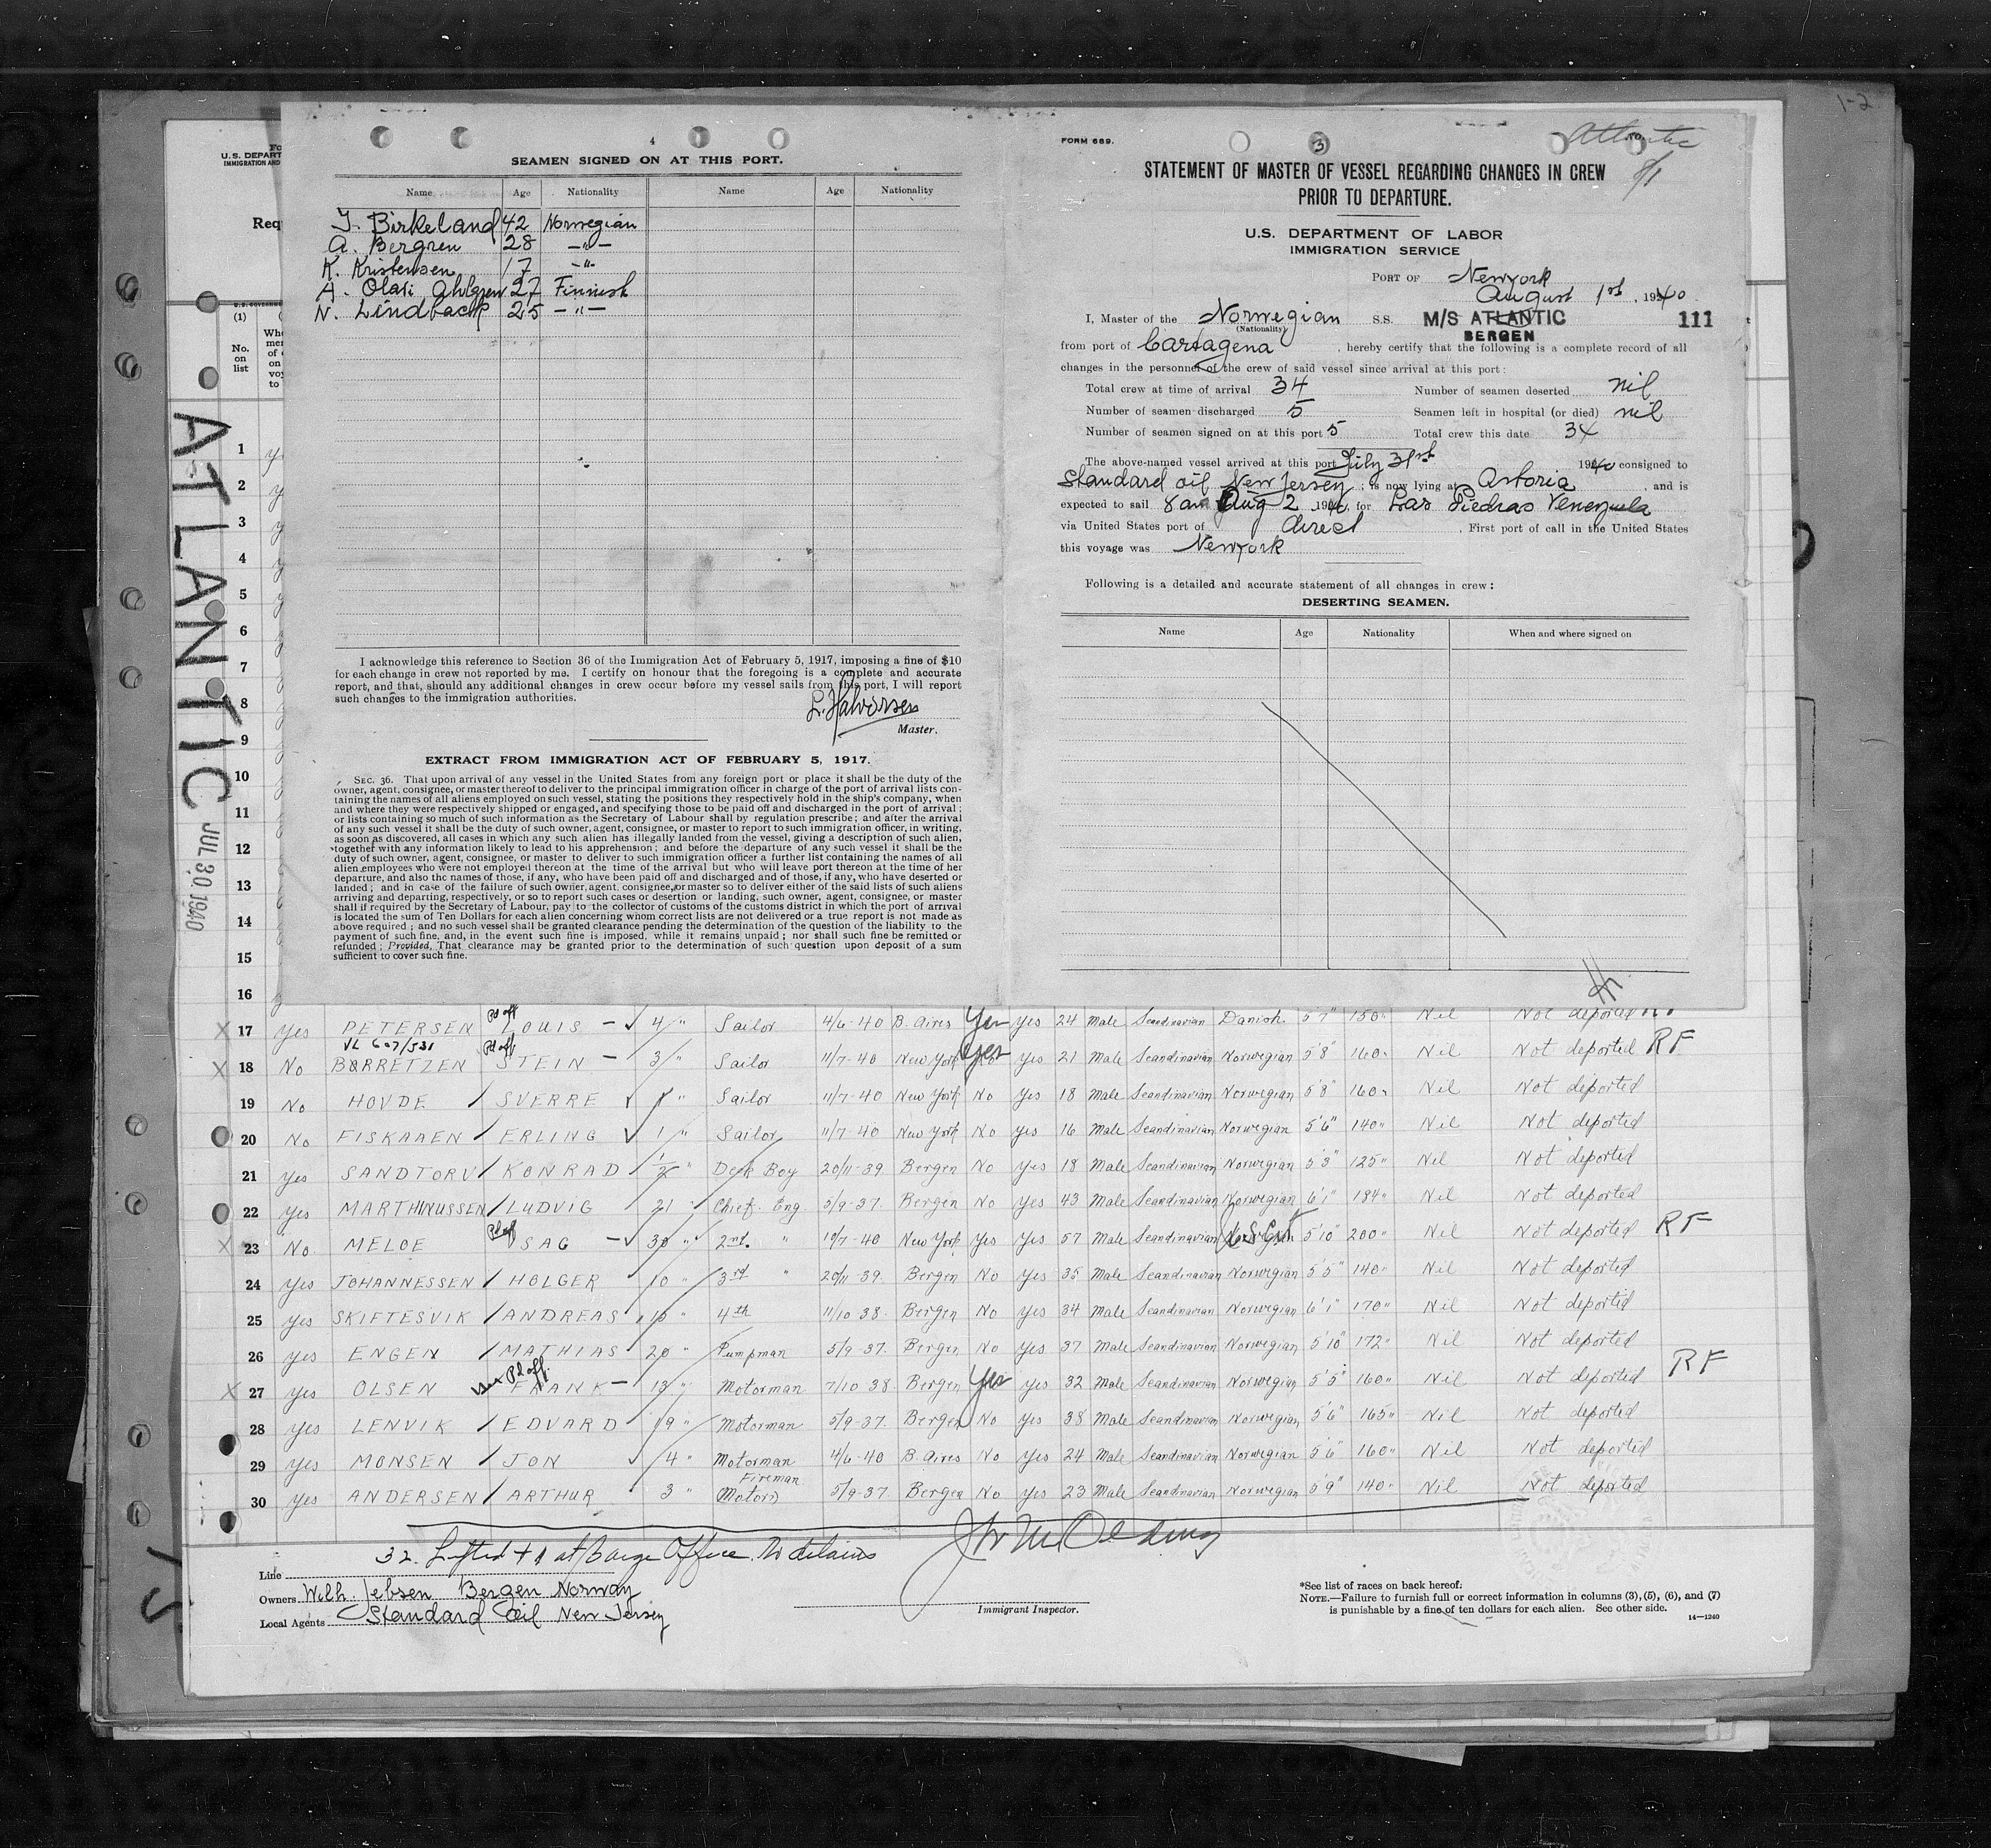 1-2
U.S. DEPART
IMMIGRATION AND
Req
(1)
No.
on
list
ATLANTIC
JUL 30 1940
4
SEAMEN SIGNED ON AT THIS PORT.
Name Age Nationality Name Age Nationality
J. Birkeland 42 Norwegian
A. Bergren 28 -"-
K. Kristensen 17 -"-
A. Olavi Ahlgren 27 Finnish
N. Lindback 25 -"-
I acknowledge this reference to Section 36 of the Immigration Act of February 5, 1917, imposing a fine of $10
for each change in crew not reported by me. I certify on honour that the foregoing is a complete and accurate
report, and that, should any additional changes in crew occur before my vessel sails from this port, I will report
such changes to the immigration authorities.
L. Halvorsen
Master.
EXTRACT FROM IMMIGRATION ACT OF FEBRUARY 5, 1917.
SEC. 36. That upon arrival of any vessel in the United States from any foreign port or place it shall be the duty of the
owner, agent, consignee, or master thereof to deliver to the principal immigration officer in charge of the port of arrival lists con-
taining the names of all aliens employed on such vessel, stating the positions they respectively hold in the ship's company, when
and where they were respectively shipped or engaged, and specifying those to be paid off and discharged in the port of arrival;
or lists containing so much of such information as the Secretary of Labour shall by regulation prescribe; and after the arrival
of any such vessel it shall be the duty of such owner, agent, consignee, or master to report to such immigration officer, in writing,
as soon as discovered, all cases in which any such alien has illegally landed from the vessel, giving a description of such alien,
together with any information likely to lead to his apprehension; and before the departure of any such vessel it shall be the
duty of such owner, agent, consignee, or master to deliver to such immigration officer a further list containing the names of all
alien employees who were not employed thereon at the time of the arrival but who will leave port thereon at the time of her
departure, and also the names of those, if any, who have been paid off and discharged and of those, if any, who have deserted or
landed; and in case of the failure of such owner, agent, consignee, or master so to deliver either of the said lists of such aliens
arriving and departing, respectively, or so to report such cases or desertion or landing, such owner, agent, consignee, or master
shall if required by the Secretary of Labour, pay to the collector of customs of the customs district in which the port of arrival
is located the sum of Ten Dollars for each alien concerning whom correct lists are not delivered or a true report is not made as
above required; and no such vessel shall be granted clearance pending the determination of the question of the liability to the
payment of such fine, and, in the event such fine is imposed, while it remains unpaid; nor shall such fine be remitted or
refunded; Provided, That clearance may be granted prior to the determination of such question upon deposit of a sum
sufficient to cover such fine.
FORM 689.
3
Atlantic
8/1
STATEMENT OF MASTER OF VESSEL REGARDING CHANGES IN CREW
PRIOR TO DEPARTURE.
U.S. DEPARTMENT OF LABOR
IMMIGRATION SERVICE
PORT OF Newyork
August 1st, 1940
I, Master of the Norwegian S.S. M/S ATLANTIC 111
(Nationality)
BERGEN
from port of Cartagena, hereby certify that the following is a complete record of all
changes in the personnel of the crew of said vessel since arrival at this port:
Total crew at time of arrival 34 Number of seamen deserted nil
Number of seamen discharged 5 Seamen left in hospital (or died) nil
Number of seamen signed on at this port 5 Total crew this date 34
The above-named vessel arrived at this port July 31st 1940 consigned to
Standard oil New Jersey; is now lying at Astoria, and is
expected to sail 8 am Aug 2 1940, for Las Piedras Venezuela
via United States port of direct. First port of call in the United States
this voyage was Newyork
Following is a detailed and accurate statement of all changes in crew:
DESERTING SEAMEN.
Name Age Nationality When and where signed on
1
2
3
4
5
6
7
8
9
10
11
12
13
14
15
16
X 17 Yes PETERSEN Pd off LOUIS - 4 " Sailor 4/6-40 B. Aires Yes Yes 24 Male Scandinavian Danish 5'7" 150 Nil Not deported
VL 607/531
X 18 No BØRRETZEN Pd off STEIN - 3 " Sailor 11/7-40 New York Yes Yes 21 Male Scandinavian Norwegian 5'8" 160 Nil Not deported RF
19 No HOVDE SVERRE 1 " Sailor 11/7-40 New York No Yes 18 Male Scandinavian Norwegian 5'8" 160 Nil Not deported
20 No FISKAAEN ERLING 1 " Sailor 11/7-40 New York No Yes 16 Male Scandinavian Norwegian 5'6" 140 " Nil Not deported
21 Yes SANDTORV KONRAD 1/2 " Deck Boy 20/11-39 Bergen No Yes 18 Male Scandinavian Norwegian 5'3" 125 " Nil Not deported
22 Yes MARTHINUSSEN LUDVIG 21 " Chief. Eng. 5/9-37. Bergen No Yes 43 Male Scandinavian Norwegian 6'1" 184 " Nil Not deported
X 23 No. MELOE Pd off ISAG - 30 " 2nd. " 10/7-40 New York Yes Yes 57 Male Scandinavian Norwegian U.S. Cit 5'10" 200 " Nil Not deported RF
24 Yes JOHANNESSEN HOLGER 10 " 3rd " 20/11 39. Bergen No Yes 35 Male Scandinavian Norwegian 5'5" 140 " Nil Not deported
25 Yes SKIFTESVIK ANDREAS 10 " 4th 11/10 38. Bergen No Yes 34 Male Scandinavian Norwegian 6'1" 170 " Nil Not deported
26 Yes ENGEN MATHIAS 20 " Pumpman 5/9-37. Bergen No Yes 37 Male Scandinavian Norwegian 5'10" 172 " Nil Not deported
X 27 Yes OLSEN Pd off. FRANK - 13 " Motorman 7/10 38 Bergen Yes Yes 32 Male Scandinavian Norwegian 5'5" 160 " Nil Not deported RF
28 Yes LENVIK EDVARD 19 " Motorman 5/9-37. Bergen No Yes 38 Male Scandinavian Norwegian 5'6" 165 " Nil Not deported
29 Yes MONSEN JON 4 " Motorman 4/6-40 B. Aires No Yes 24 Male Scandinavian Norwegian 5'6" 160 " Nil Not deported
Fireman
30 Yes ANDERSEN ARTHUR 3 " (Motor) 5/9-37. Bergen No Yes 23 Male Scandinavian Norwegian 5'9" 140 " Nil Not deported
32. Lifted + 1 at Barge Office. No detains
Line
Owners Wilh. Jebsen Bergen Norway
Local Agents Standard Oil New Jersey
Immigrant Inspector.
*See list of races on back hereof.
NOTE.—Failure to furnish full or correct information in columns (3), (5), (6), and (7)
is punishable by a fine of ten dollars for each alien. See other side.
14—1240